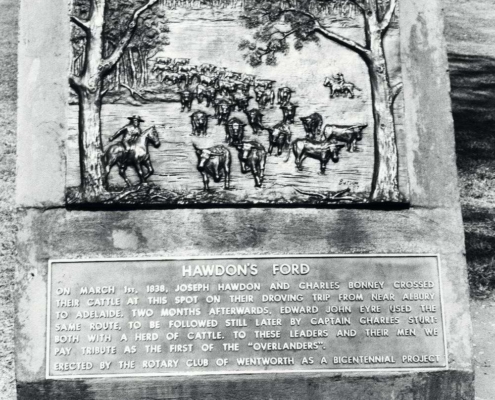 HAWDON'S FORD
ON MARCH 1ST, 1838, JOSEPH HAWDON AND CHARLES BONNEY CROSSED
THEIR CATTLE AT THIS SPOT ON THEIR DROVING TRIP FROM NEAR ALBURY
TO ADELAIDE. TWO MONTHS AFTERWARDS, EDWARD JOHN EYRE USED THE
SAME ROUTE, TO BE FOLLOWED STILL LATER BY CAPTAIN CHARLES STURT.
BOTH WITH A HERD OF CATTLE. TO THESE LEADERS AND THEIR MEN WE
PAY TRIBUTE AS THE FIRST OF THE "OVERLANDERS".
ERECTED BY THE ROTARY CLUB OF WENTWORTH AS A BICENTENNIAL PROJECT